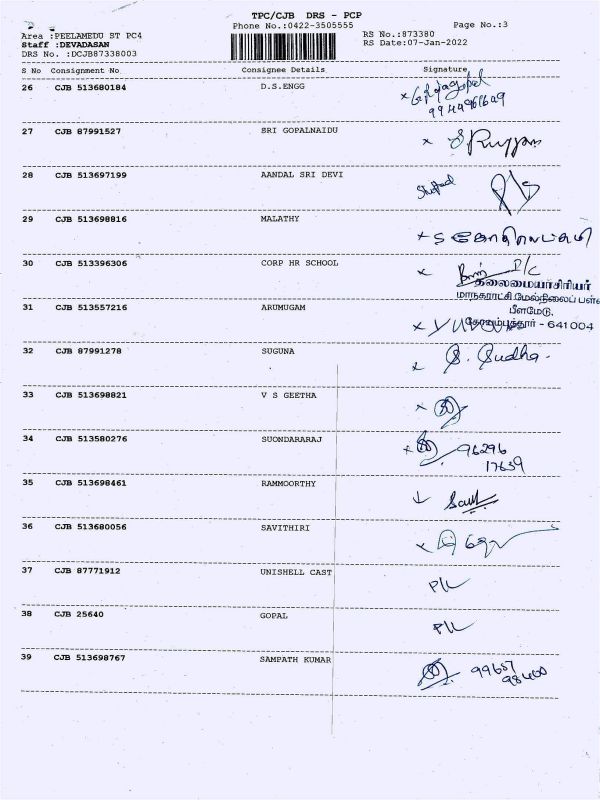 TPC/CJB DRS - PCP
Phone No.:0422-3505555
Page No.:3
Area :PEELAMEDU ST PC4
Staff :DEVADASAN
DRS No. :DCJB87338003
RS No.:873380
RS Date:07-Jan-2022
S No Consignment No Consignee Details Signature
26 CJB 513680184 D.S.ENGG
27 CJB 87991527 SRI GOPALNAIDU
28 CJB 513697199 AANDAL SRI DEVI
29 CJB 513698816 MALATHY
30 CJB 513396306 CORP HR SCHOOL
தலைமையாசிரியர்
மாநகராட்சி மேல்நிலைப் பள்
பீளமேடு,
31 CJB 513557216 ARUMUGAM
கோயம்புத்தூர் - 641004
32 CJB 87991278 SUGUNA S. Sudha.
33 CJB 513698821 V S GEETHA
34 CJB 513580276 SUONDARARAJ 96296
17639
35 CJB 513698461 RAMMOORTHY
36 CJB 513680056 SAVITHIRI
37 CJB 87771912 UNISHELL CAST P/L
38 CJB 25640 GOPAL P/L
39 CJB 513698767 SAMPATH KUMAR 99657
98400